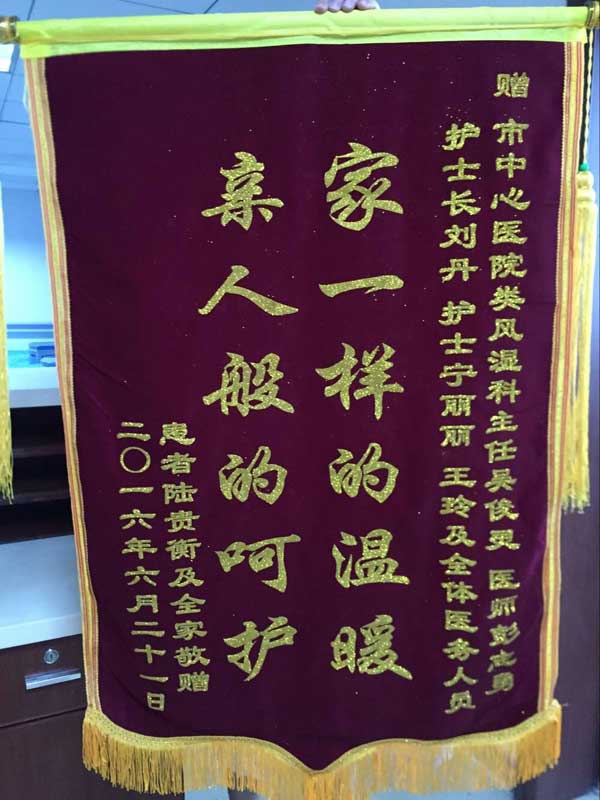 赠 市中心医院类风湿科主任吴俊灵 医师彭志勇
护士长刘丹 护士宁丽丽 王玲及全体医务人员
家一样的温暖
亲人般的呵护
患者陆贵衡及全家敬赠
二〇一六年六月二十一日